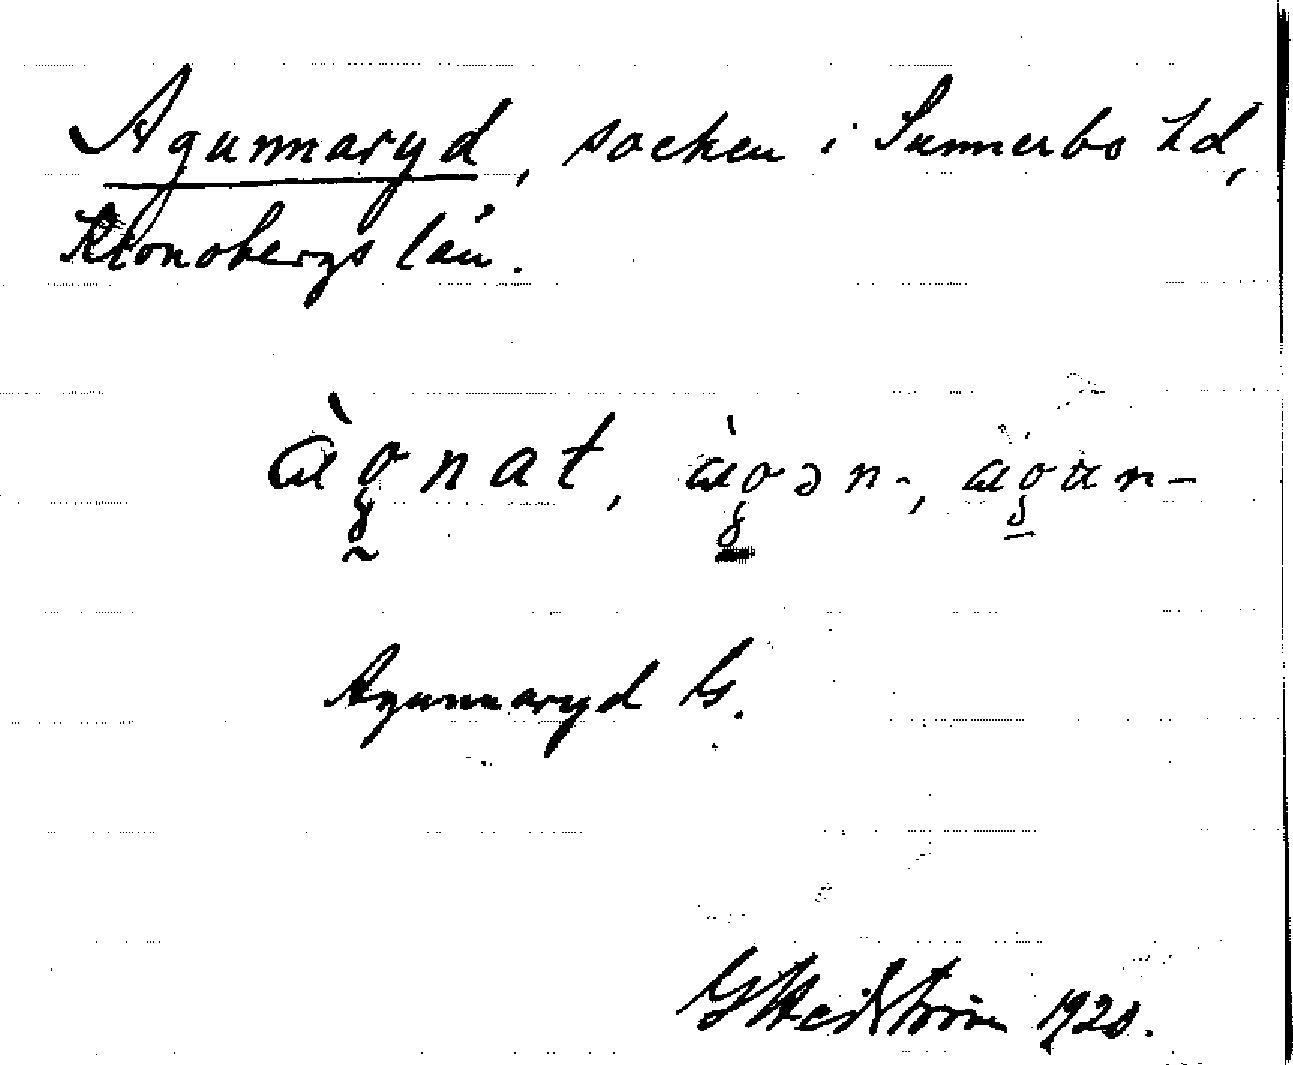 Agunnaryd, socken i Sunnerbo hd,
Kronobergs län.
Agunnaryd G.
G Hedström 1920.